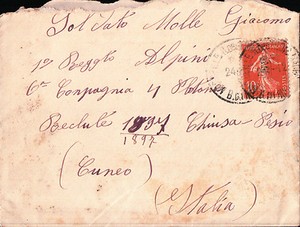 Soldato Molle Giacomo
1º Reggto Alpini
6ª Conpagnia 4 Plotone
Reclute 1897 Chiusa-Pesio
1897
(Cuneo)
(Italia)
10